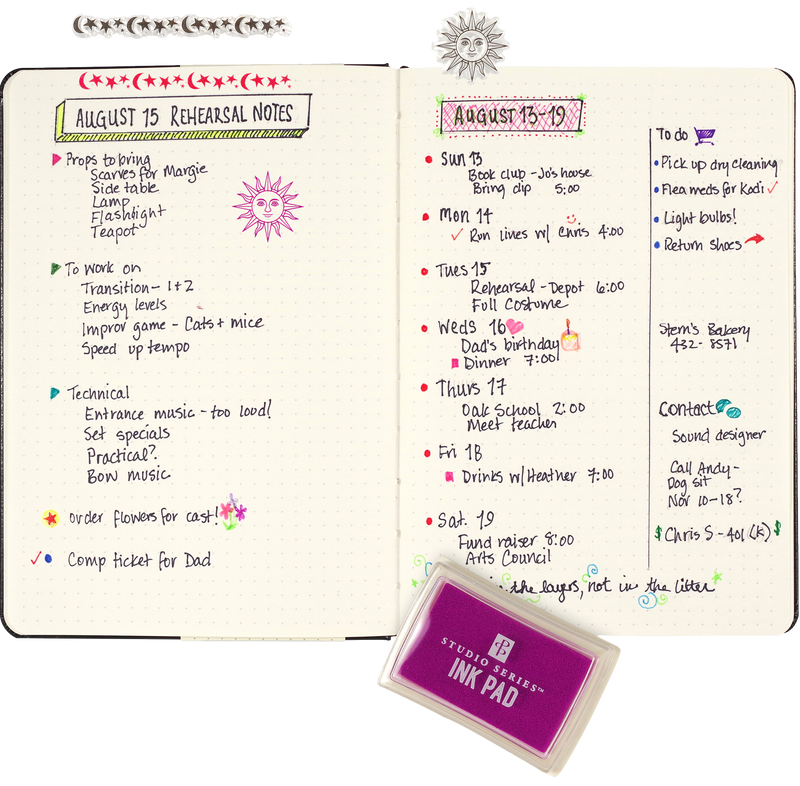 AUGUST 15 REHEARSAL NOTES
Props to bring
Scarves for Margie
Side table
Lamp
Flashlight
Teapot
To work on
Transition - 1+2
Energy levels
Improv game - Cats + mice
Speed up tempo
Technical
Entrance music - too loud!
Set specials
Practical?
Bow music
order flowers for cast!
Comp ticket for Dad
AUGUST 13-19
Sun 13
Book club - Jo's house
Bring dip 5:00
Mon 14
Run lines w/ Chris 4:00
Tues 15
Rehearsal - Depot 6:00
Full Costume
Weds 16
Dad's birthday
Dinner 7:00
Thurs 17
Oak School 2:00
Meet teacher
Fri 18
Drinks w/ Heather 7:00
Sat. 19
Fund raiser 8:00
Arts Council
To do
Pick up dry cleaning
Flea meds for Kodi
Light bulbs!
Return shoes
Stern's Bakery
432-8571
Contact
Sound designer
Call Andy -
Dog sit
Nov 10-18?
$ Chris S - 401 (k) $
the layers, not in the litter
STUDIO SERIES™
INK PAD